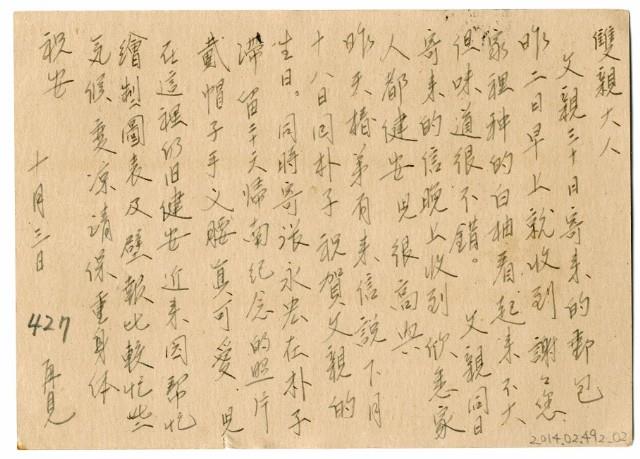 雙親大人
父親三十日寄來的郵包
昨二日早上就收到 謝謝您
家裡种的白柚看起來不大
但味道很不錯。 父親同日
寄來的信晚上收到欣悉家
人都健安 兒很高興
昨天椿弟有來信說下月
十八日回朴子 祝賀父親的
生日。同時寄張永宏在朴子
滯留二十天歸南紀念的照片
戴帽子手义腰真可愛 兒
在這裡仍旧健安 近來因幫忙
繪製圖表及壁報比較忙些
气候变凉請保重身体
祝安
十月三日
427
再見
2014.02.492_02